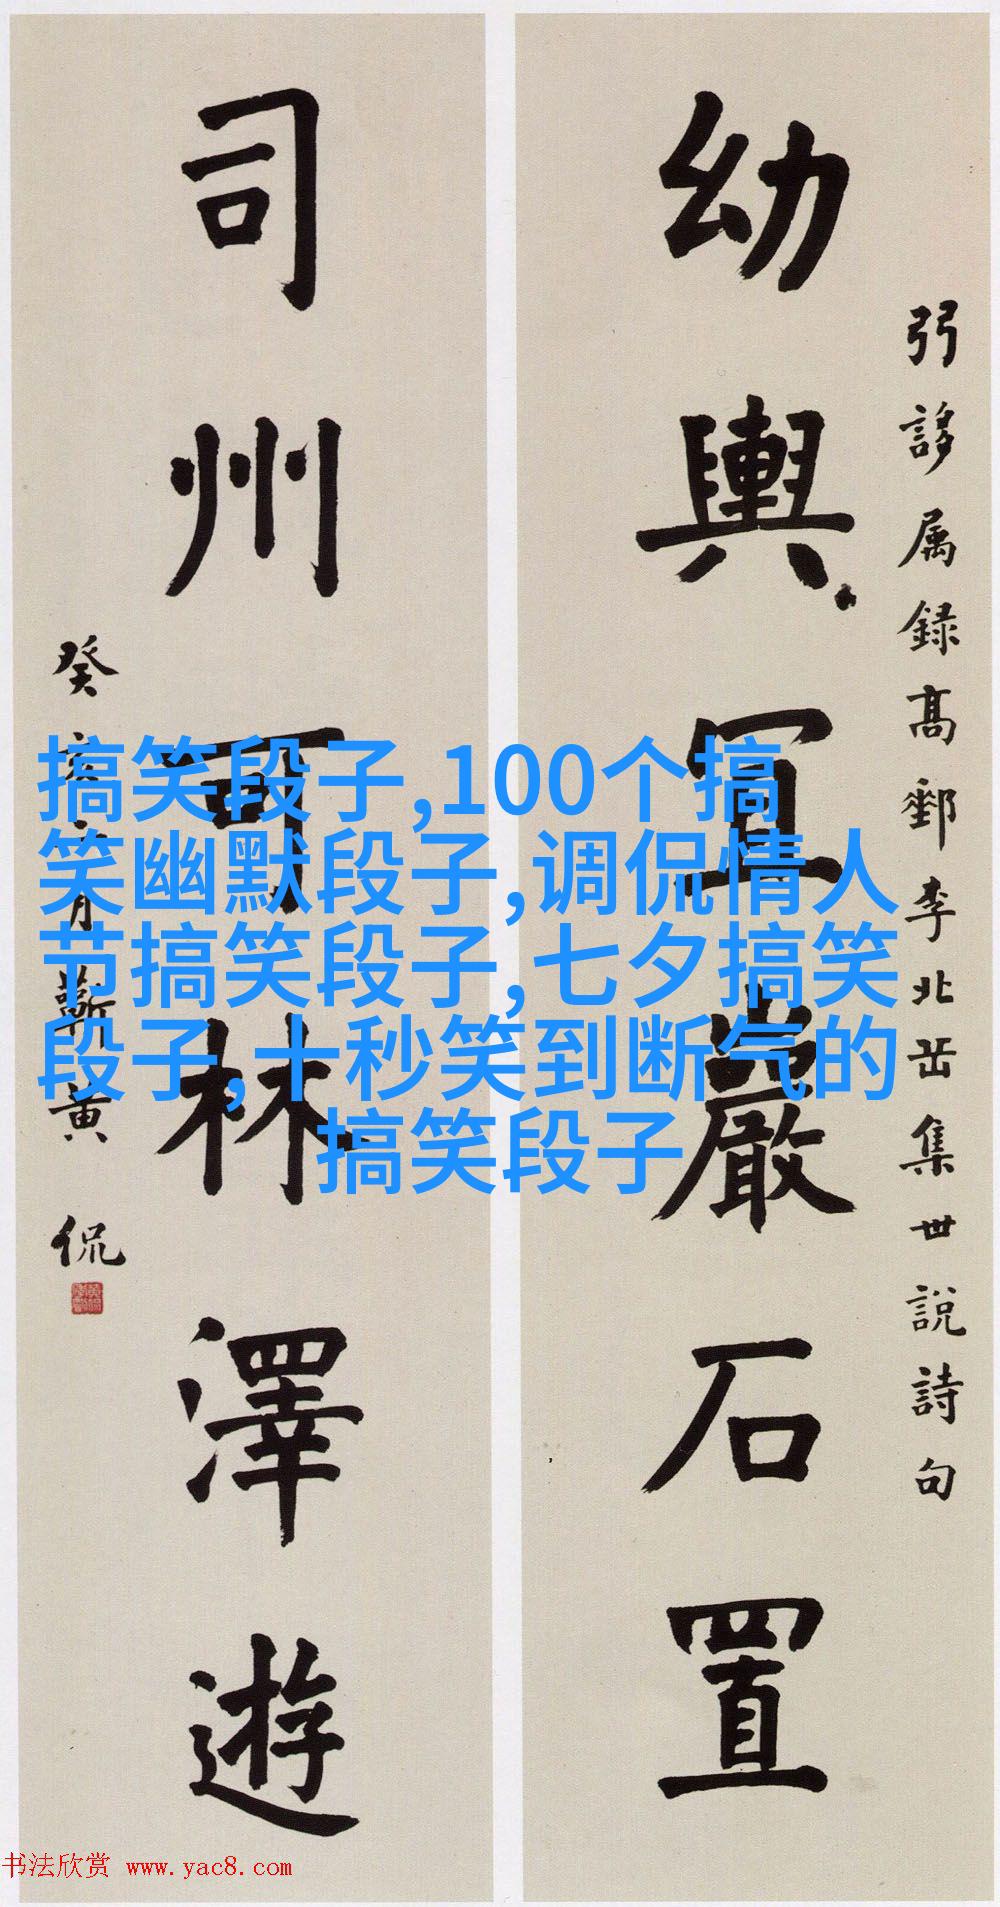 弜誃属録高郵李北岳集世説詩句
幼輿宜巖石置
司州可林澤遊
癸亥六月蘄黄侃
搞笑段子,100个搞
笑幽默段子,调侃情人
节搞笑段子,七夕搞笑
段子,十秒笑到断气的
搞笑段子
书法欣赏 www.yac8.com